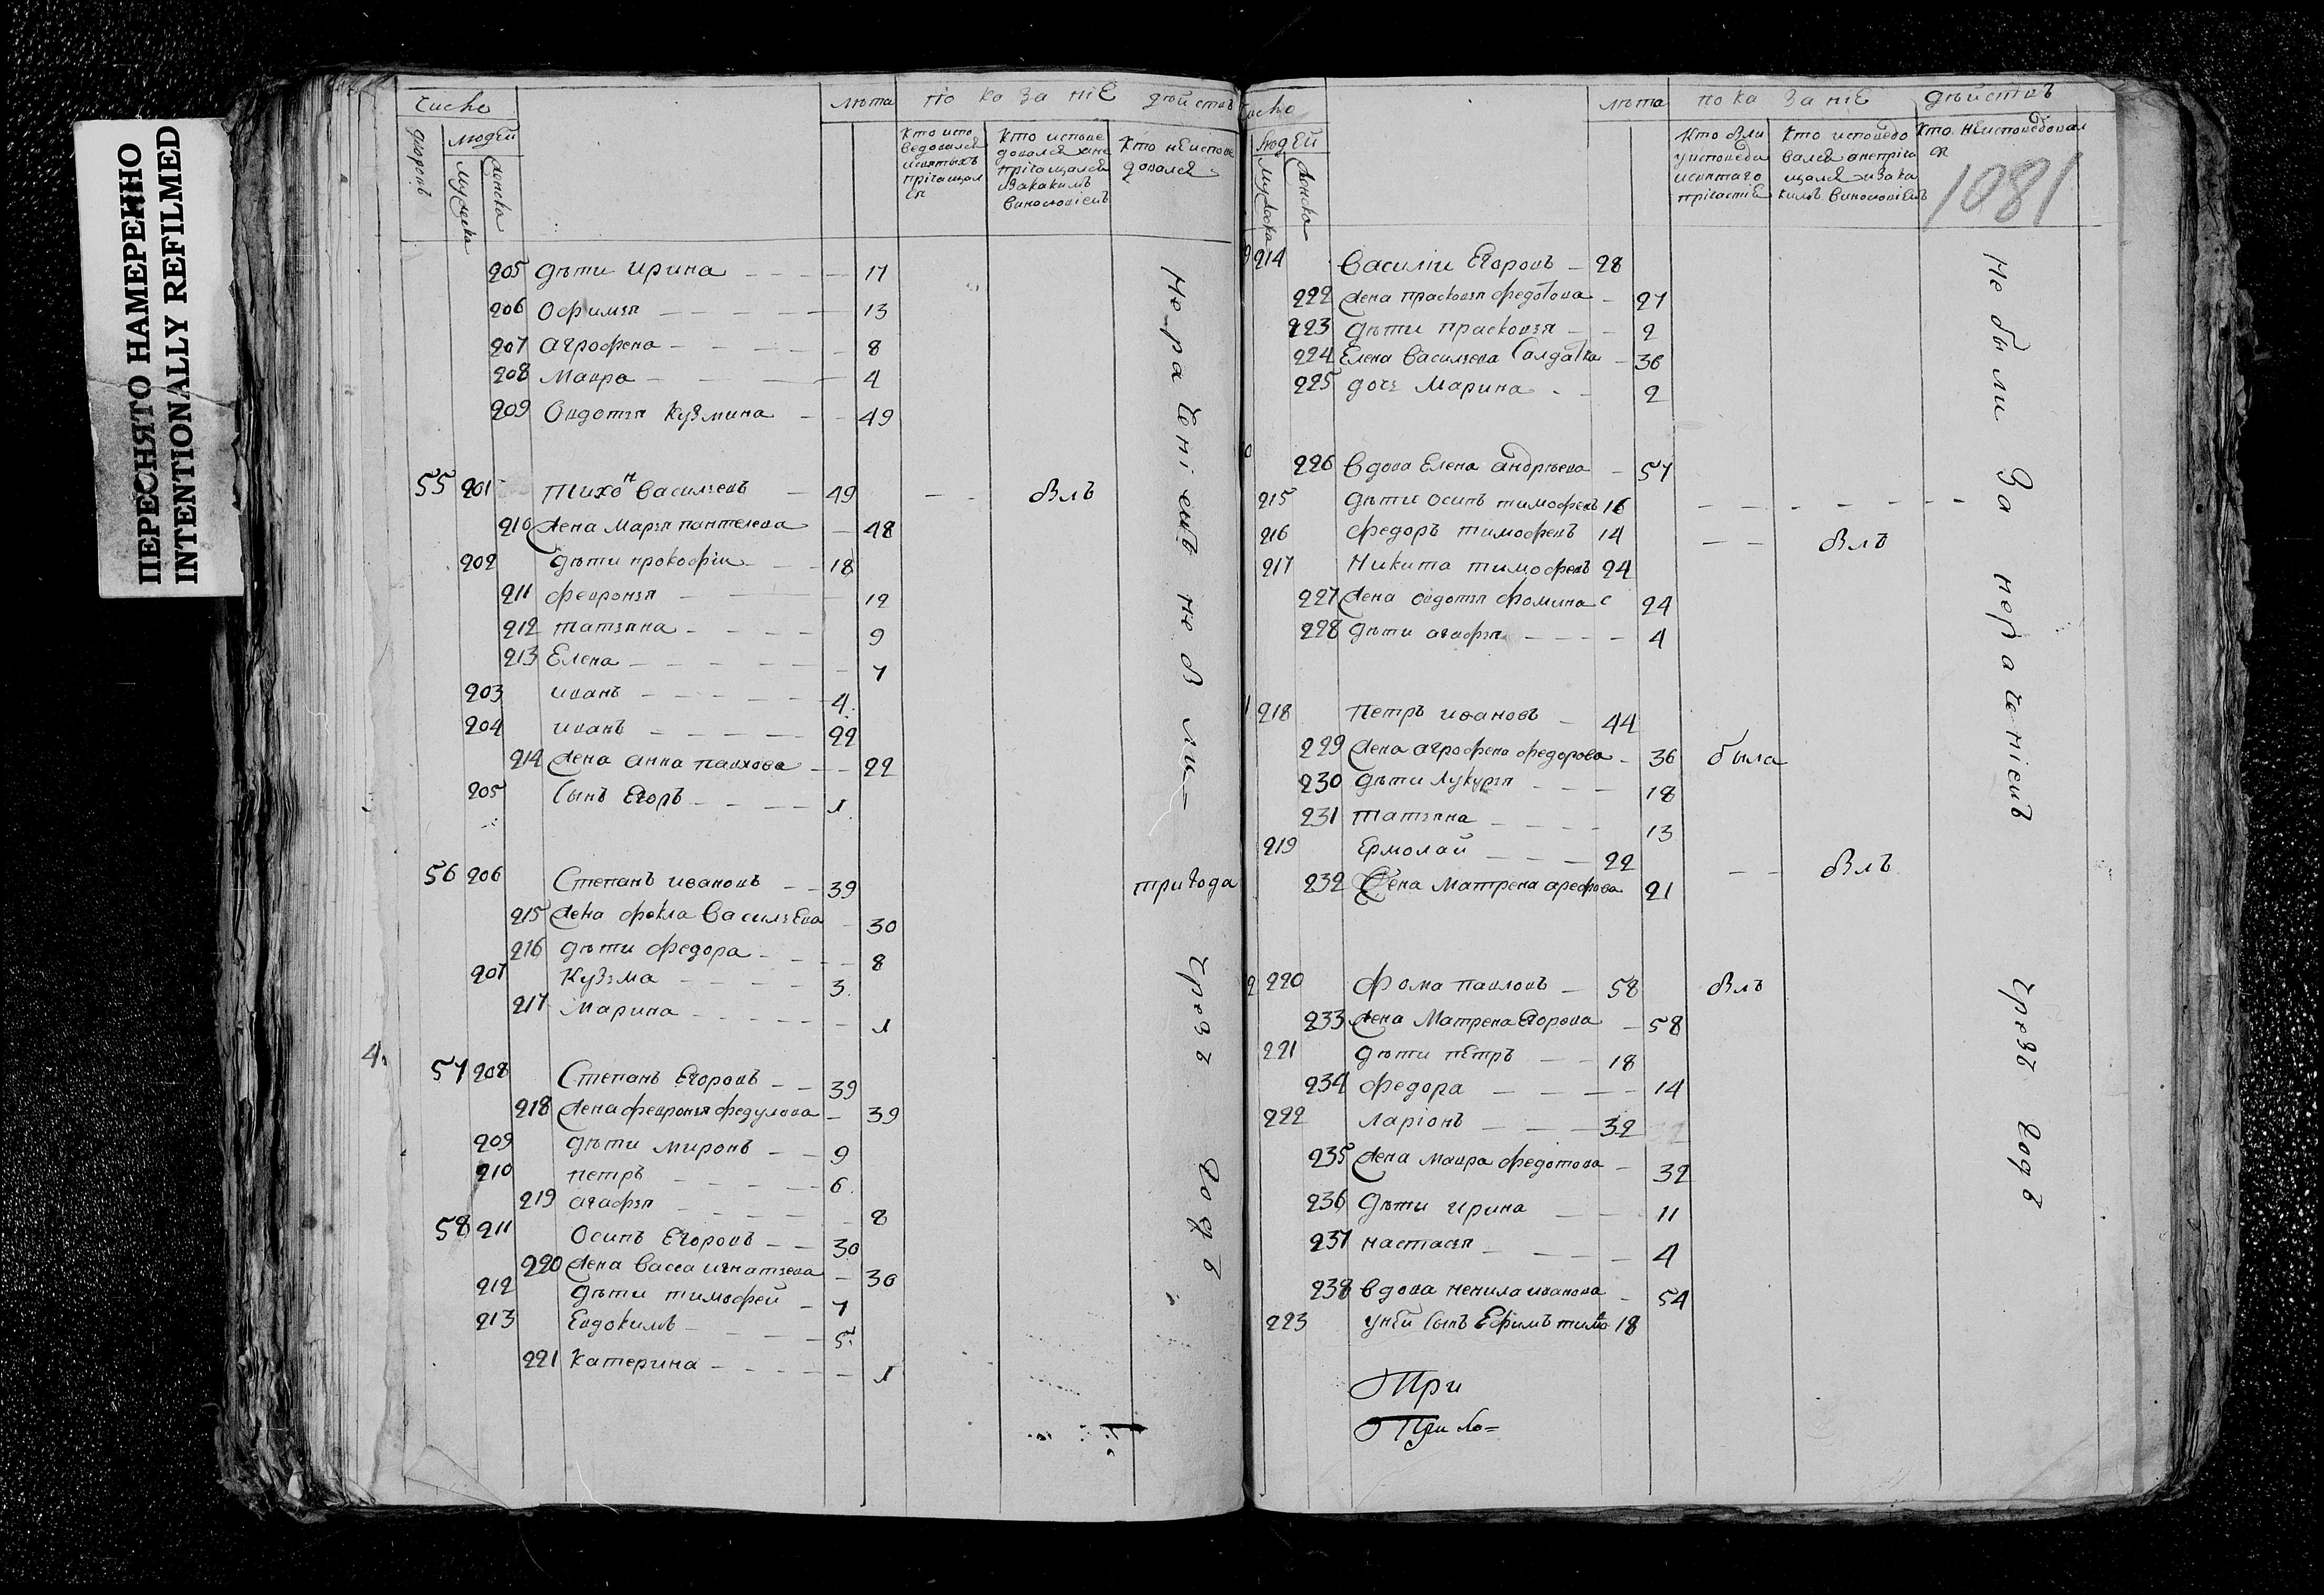 ПЕРЕСНЯТО НАМЕРЕННО
INTENTIONALLY REFILMED
число
лѣта
по ка за ніЕ дѣйствъ
дворовъ
людей
мужеска
женска
кто испо
ведовался
исвятыхъ
прічащал
ся
кто испове
довался ане
прічащался
изакакимъ
винословіемъ
Кто неиспове
довался
205 дѣти Ирина 17
206 Офимья 13
207 Агрофена 8
208 Мавра 4
209 Овдотья Кузмина 49
55 201 Тихон Васильевъ 49 Былъ
210 жена Марья пантелева 48
202 дѣти прокофіи 18
211 февронья 12
212 татьяна 9
213 Елена 7
203 иванъ 4
204 иванъ 22
214 жена анна павлова 22
205 Сынъ Егоръ 1
56 206 Степанъ ивановъ 39 три года
215 жена фекла ВасильЕва 30
216 дѣти федора 8
207 Кузьма 3
217 Марина 1
57 208 Степанъ Егоровъ 39
218 жена февронья федулова 39
209 дѣти миронъ 9
210 петръ 6
219 агафья 8
58 211 Осипъ Егоровъ 30
220 жена Васса игнатьева 30
212 дѣти тимофей 7
213 Евдокимъ 5
221 Катерина 1
Не ра чені емъ не бы ли чрезъ годъ
число
лѣта
по ка за ніЕ дѣйствъ
людей
мужеска
женска
Кто были
у исповеди
исвятаго
прічастіЕ
Кто исповедо
вался анепріча
щался иза ка
кимъ винословіемъ
Кто неисповедовал
ся
1081
214 Василіи Егоровъ 28
222 жена прасковья федотова 27
223 дѣти прасковья 2
224 Елена Васильева Салдатка 36
225 дочь Марина 2
226 вдова Елена андрѣева 57
215 дѣти осипъ тимофеевъ 16
216 федоръ тимофеевъ 14 Былъ
217 Никита тимофеевъ 24
227 жена овдотья фомина 24
228 дѣти агафья 4
218 Петръ ивановъ 44
229 жена агрофена федорова 36 была
230 дѣти Лукерья 18
231 татьяна 13
219 Ермолай 22 Былъ
232 жена Матрена арефова 21
220 фома павловъ 58 Былъ
233 жена Матрена Егорова 58
221 дѣти пЕтръ 18
234 федора 14
222 ларіонъ 32
235 жена мавра федотова 32
236 дѣти ирина 11
237 настасья 4
238 вдова ненила иванова 54
223 унЕй Сынъ Ефимъ тимо 18
Не бы ли За нера че ніемъ чрезъ годъ
При